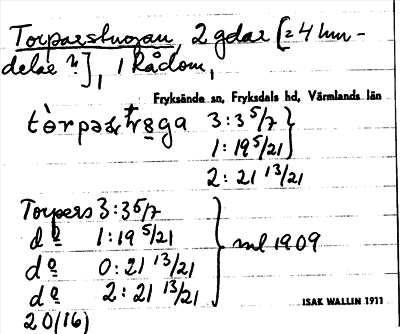 Torparstugan, 2 gdar [= 4 hm-
delar ?], i Rådom,
Fryksände sn, Fryksdals hd, Värmlands län
3:3 5/7
1:19 5/21
2:21 13/21
Torpers 3:3 5/7
do 1:19 5/21
do 0:21 13/21 ml 1909
do 2:21 13/21
20(16)
ISAK WALLIN 1911